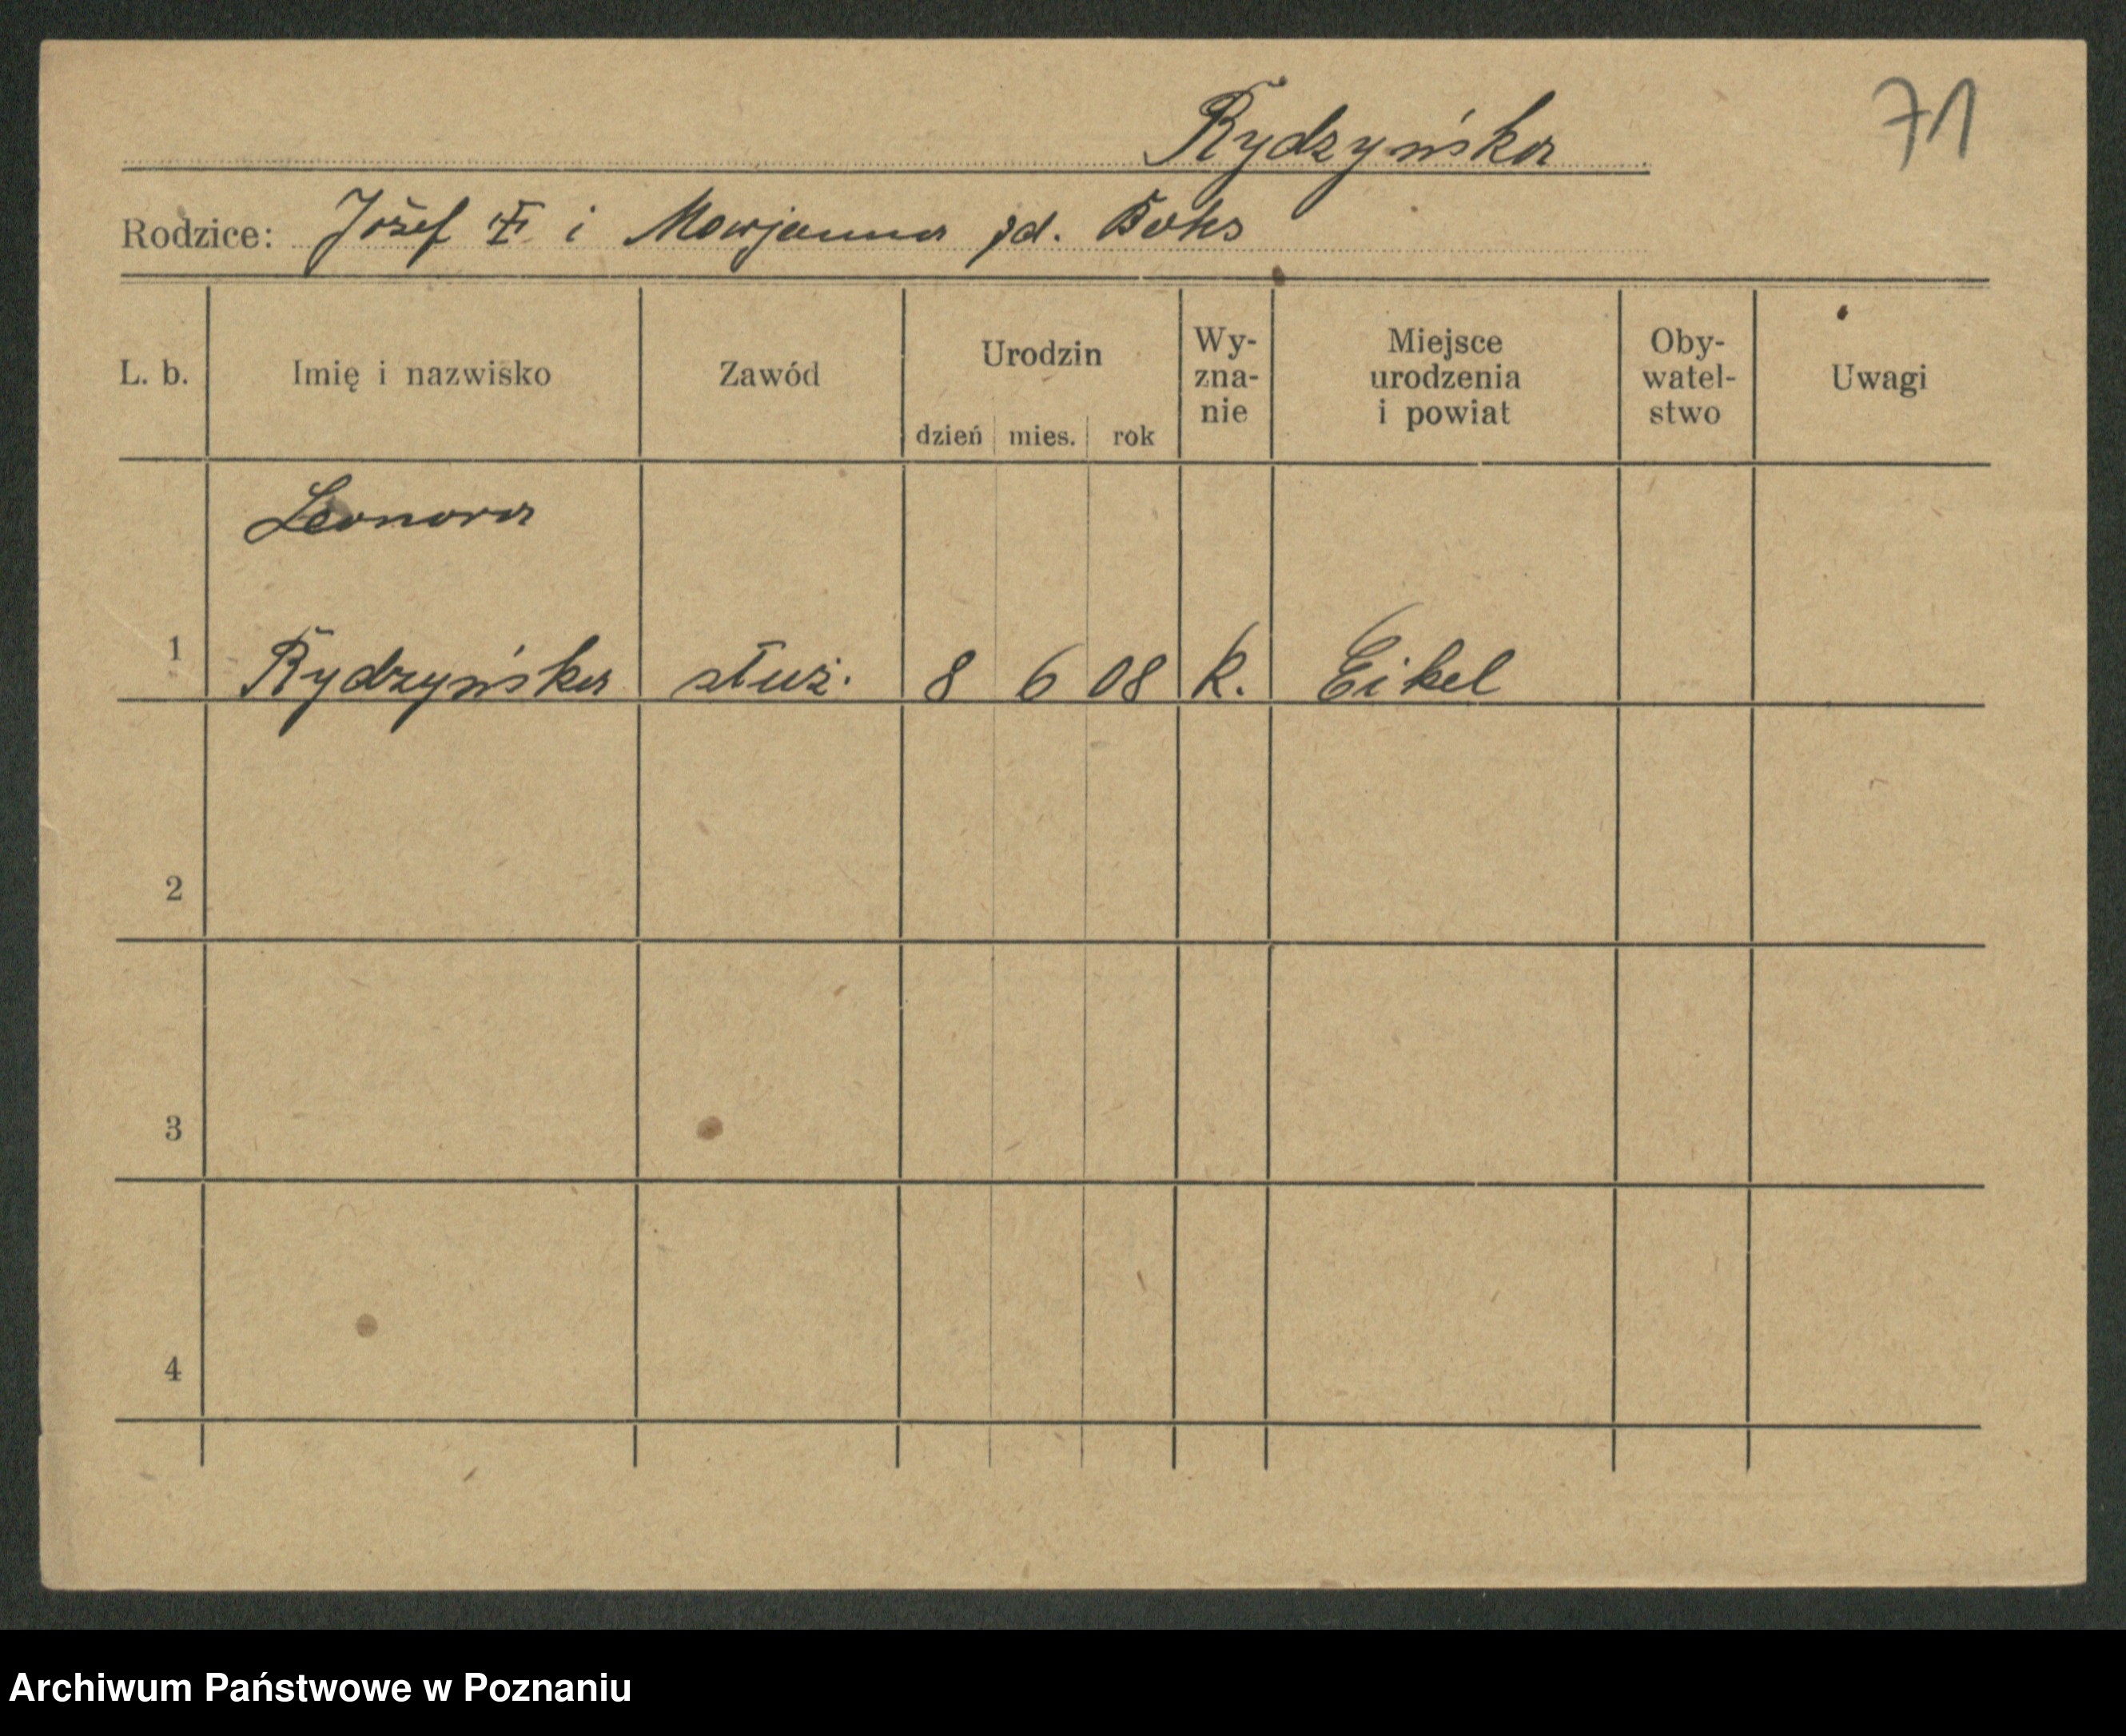 Rydzyńska
71
Rodzice: Józef i Marjanna zd.
L. b. Imię i nazwisko Zawód Urodzin dzień mies. rok Wy-zna-nie Miejsce urodzenia i powiat Oby-watel-stwo Uwagi
Leonora
1 Rydzyńska służ. 8 6 08 k. Eikel
2
3
4
Archiwum Państwowe w Poznaniu